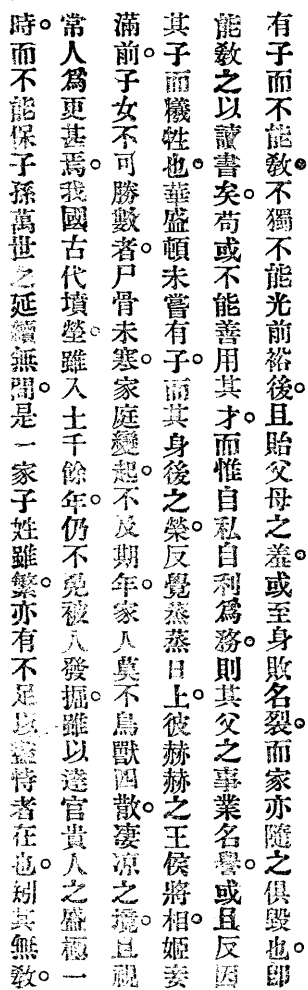 有子而不能教。不獨不能光前裕後。且貽父母之羞。或至身敗名裂。而家亦隨之俱毀也。卽
能教之以讀書矣。苟或不能善用其才。而惟自私自利爲務。則其父之事業名譽。或且反因
其子而犧牲也。華盛頓未嘗有子。而其身後之榮。反覺蒸蒸日上。彼赫赫之王侯將相。姬妾
滿前。子女不可勝數者。尸骨未寒。家庭變起。不及期年。家人莫不鳥獸四散。凄凉之境。且視
常人爲更甚焉。我國古代墳塋。雖入士千餘年。仍不免被人發掘。雖以達官貴人之盛極一
時。而不能保子孫萬世之延續無間。是一家子姓雖繁。亦有不足以盡恃者在也。矧其無教。